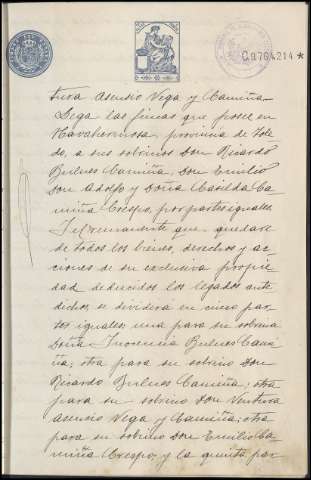 C.0764214*
tura Asensio Vega y Camiña=
Lega las fincas que posee en
Navahermosa, provincia de Tole
do, a sus sobrinos Don Ricardo
Bulnes Camiña, Don Emilio
Don Adolfo y Doña Casilda Ca
miña Crespo, por partes iguales
Y el remanente que quedare
de todos los bienes, derechos y ac
ciones de su exclusiva propie
dad deducidos los legados ante
dichos, se dividirá en cinco par
tes iguales; una para su sobrina
Doña Inocencia Bulnes Cami
ña; otra para su sobrino Don
Ricardo Bulnes Camiña; otra
para su sobrino Don Ventura
Asensio Vega y Camiña; otra
para su sobrino Don Emilio Ca
miña Crespo; y la quinta par